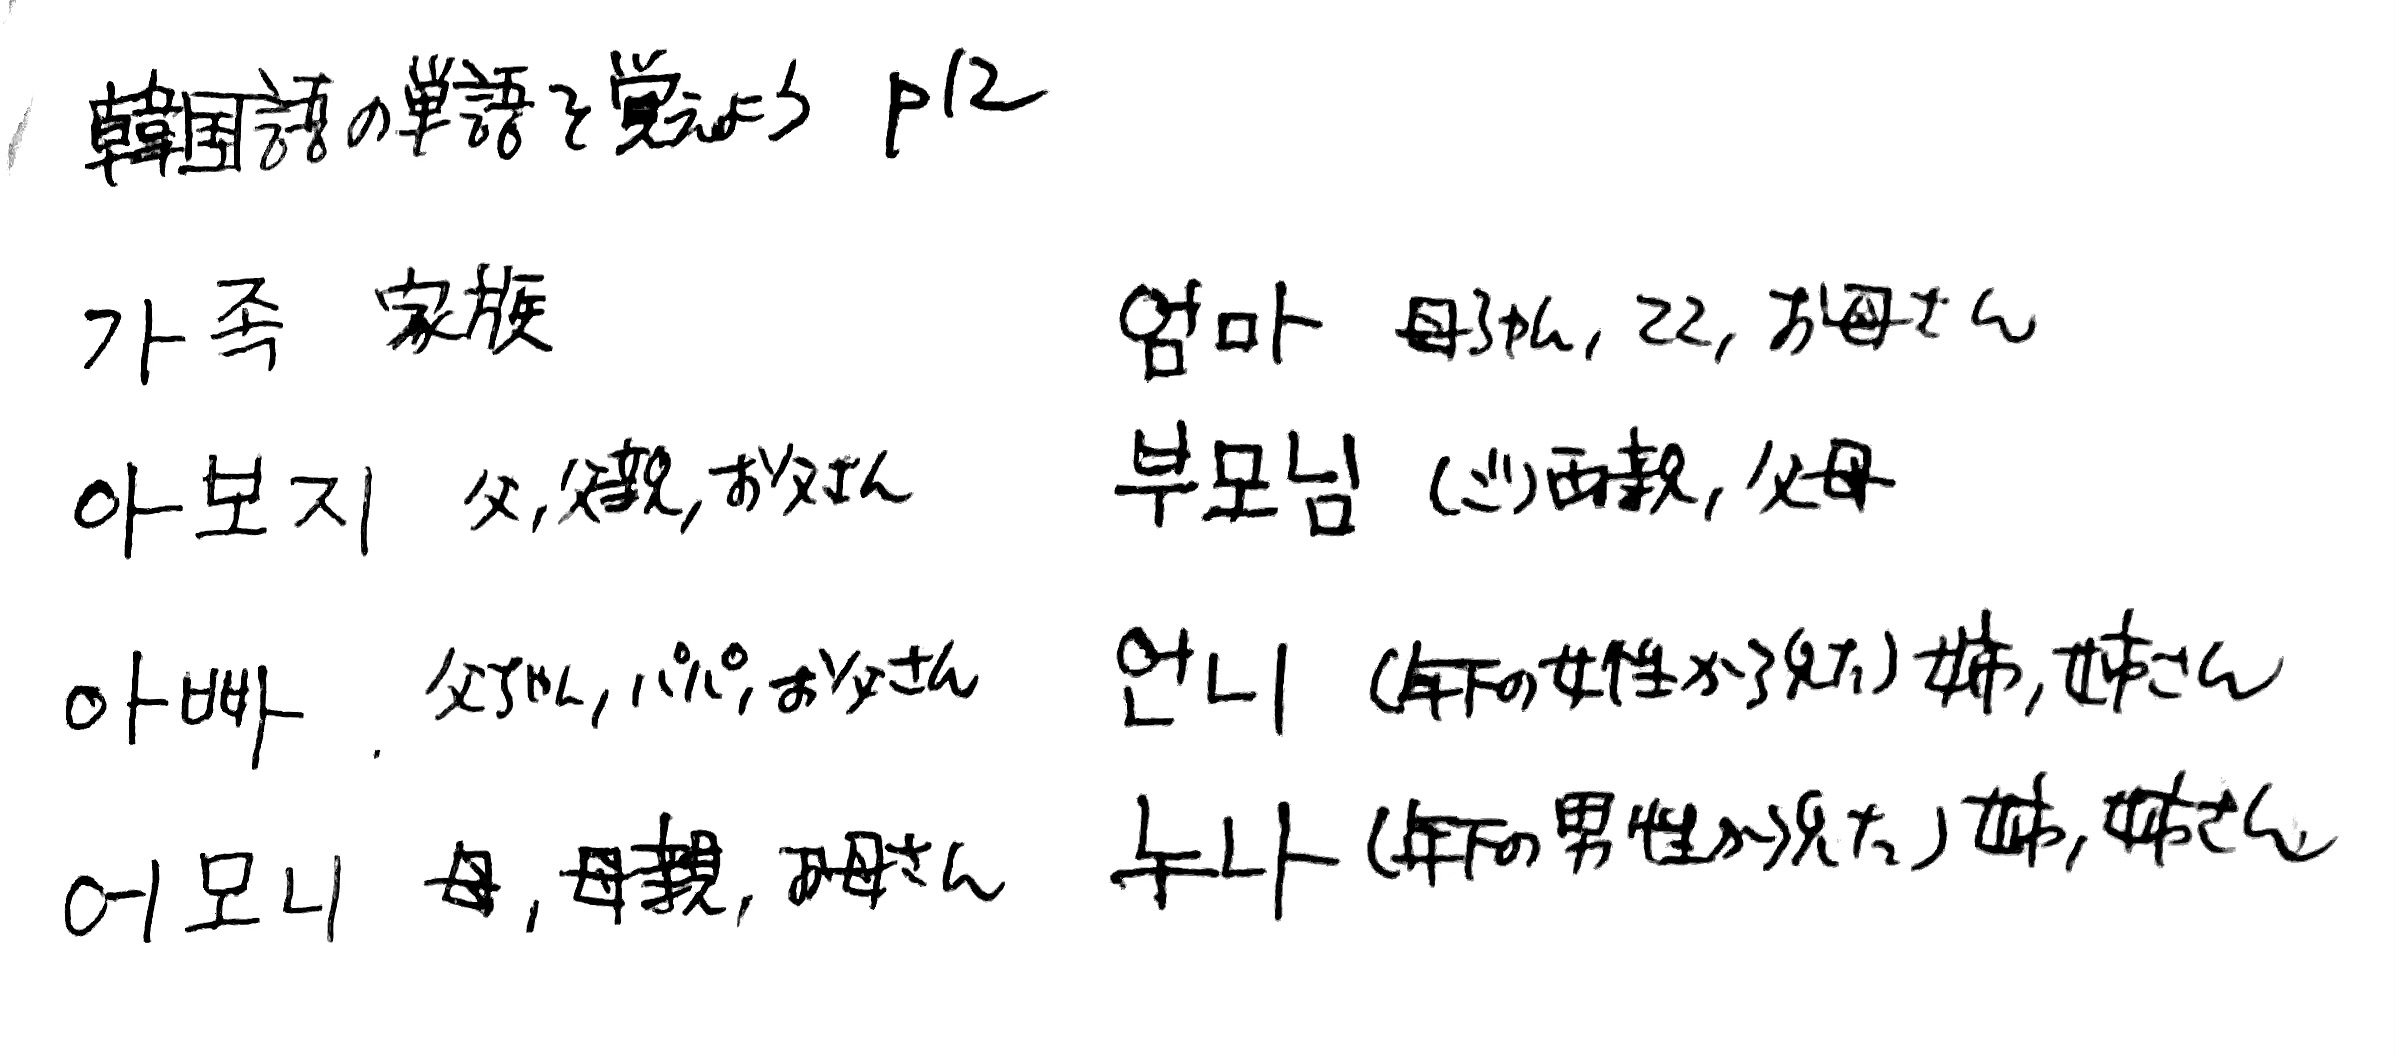 韓国語の単語を覚えよう p12
가족 家族
아보지 父, 父親, お父さん
아빠 父ちゃん, パパ, お父さん
어모니 母, 母親, お母さん
엄마 母ちゃん, ママ, お母さん
부모님 (ご)両親, 父母
언니 (年下の女性から見た) 姉, 姉さん
누나 (年下の男性から見た) 姉, 姉さん